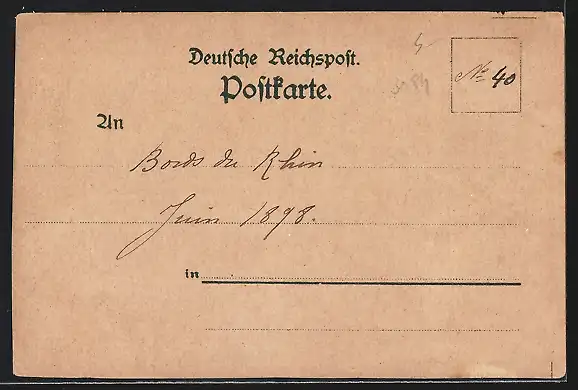 Deutsche Reichspost.
Postkarte.
Nº 40
An
Bords du Rhin
Juin 1898.
in